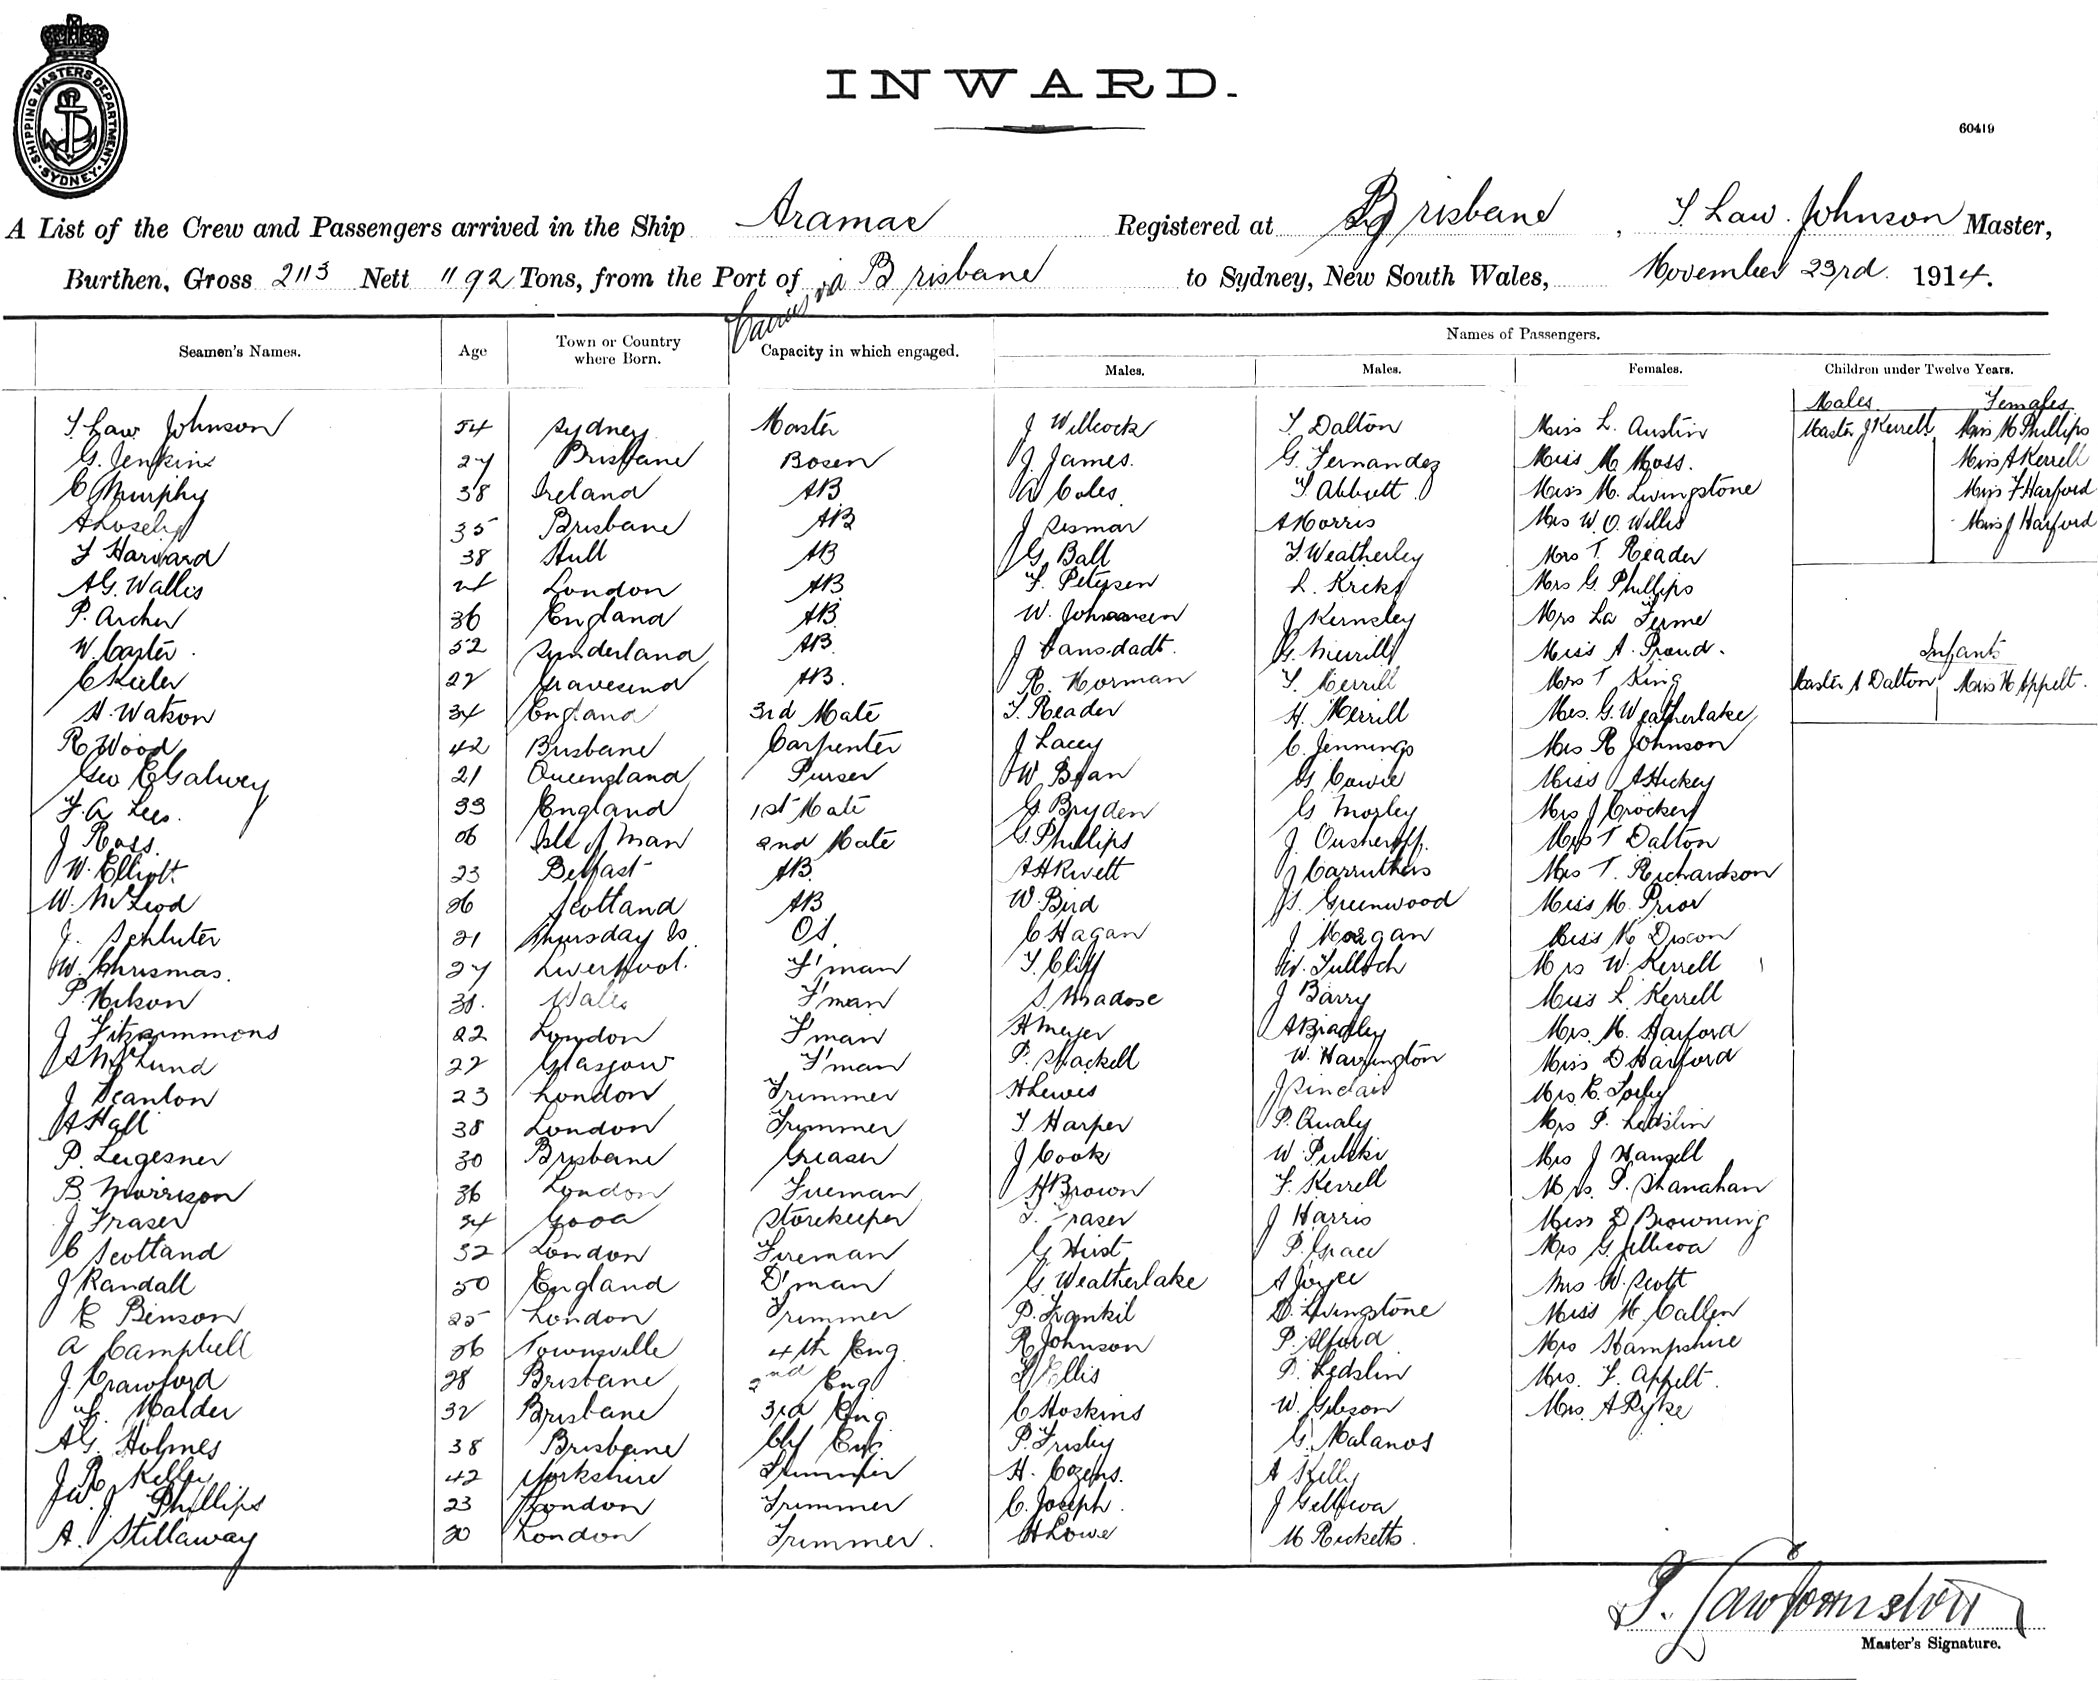 SHIPPING MASTERS DEPARTMENT. SYDNEY.
INWARD.
60419
A List of the Crew and Passengers arrived in the Ship Aramac Registered at Brisbane, T Law. Johnson Master,
Burthen, Gross 2113 Nett 1192 Tons, from the Port of Cairns via Brisbane to Sydney, New South Wales, November 23rd. 1914.
Seamen's Names. Age Town or Country where Born. Capacity in which engaged. Names of Passengers.
Males. Males. Females. Children under Twelve Years.
Males Females
T. Law Johnson 54 Sydney Master J Willcock T Dalton Miss L. Austin Master J Kerrell Miss M Phillips
G. Jenkins 27 Brisbane Bosen J. James. G. Fernandez Miss M Moss. Miss A Kerrell
C Murphy 38 Ireland AB A Coles T Abbott Miss M. Livingstone Miss F Harford
A Losely 35 Brisbane AB J Sismar A Morris Mrs W. O. Willis Miss J Harford
F Harward 38 Hull AB G Ball T Weatherley Mrs T. Reader
A G. Wallis 24 London AB F. Petersen L. Kricks Mrs G Phillips
P. Archer 36 England AB W. Johansen J Kernsley Mrs La Ferme
W. Carter 52 Sunderland AB J Vansdadt. G. Merrill Miss A. Proud. Infants
C Keeler 22 Gravesend AB. R. Norman T. Merrill Mrs T King Master A Dalton Miss H Appelt.
H. Watson 34 England 3rd Mate T. Reader H. Merrill Mrs. G. Weatherlake
R Wood 42 Brisbane Carpenter J Lacey C. Jennings Mrs R Johnson
Geo C Galwey 21 Queensland Purser W Bean G Cowie Miss A Hickey
F. A Lees. 33 England 1st Mate G. Bryden G Morley Mrs J Crockert
J Ross. 36 Isle of Man 2nd Mate G. Phillips J. Ousheroff. Mrs T Dalton
W. Elliott. 23 Belfast AB. A H Kivett J Carruthers Mrs T. Richardson
W. McLeod 26 Scotland AB W. Bird J S. Greenwood Miss M. Prior
J. Schluter 21 Thursday Is OS. C Hagan J. Morgan Miss K Dixon
W. Chrismas. 27 Liverpool. F'man T. Cliff W. Tulloch Mrs W. Kerrell
P. Nelson 31. Wales F'man S. Madose J Barry Miss L Kerrell
J Fitzsimmons 22 London F'man H Meyer A Bradley Mrs. M. Harford
22 Glasgow F'man P. Shackell W. Harrington Miss D Harford
J Scanlon 23 London Trimmer H Lewis J Sinclair Mrs. C. Sorby
A Hall 38 London Trimmer T Harper P. Qualy Mrs P. Ledslin
P. Leigesner 30 Brisbane Greaser J Cook W Pulski Mrs J Hansell
B. Morrison 36 London Fireman H Brown F. Kerrell Mrs. P. Shanahan
J Fraser 24 Storekeeper Fraser J Harris Miss D Browning
C Scotland 32 London Fireman G Hirst P. Grace Mrs G. Jellicoa
J Randall 50 England D'man G. Weatherlake A Joyce Mrs W. Scott
E Benson 25 London Trimmer P. Frankil D. Livingstone Miss M. Callen
A Campbell 26 Townsville 4th Eng. R Johnson P. Alford Mrs Hampshire
J. Crawford 28 Brisbane 2nd Eng Ellis P. Ledslin Mrs. F. Appelt.
Malder 32 Brisbane 3rd Eng C Hoskins W. Gibson Mrs. A Ryke
A G. Holmes 38 Brisbane Chf Eng P. Frisby G. Malanos
J R Kelly 42 Yorkshire Trimmer H. Cozens. A Kelly
W. J. Phillips 23 London Trimmer C. Joseph. J Jellicoa
A. Stillaway 30 London Trimmer. H Lowe M Ricketts.
T. Law Johnston
Master's Signature.